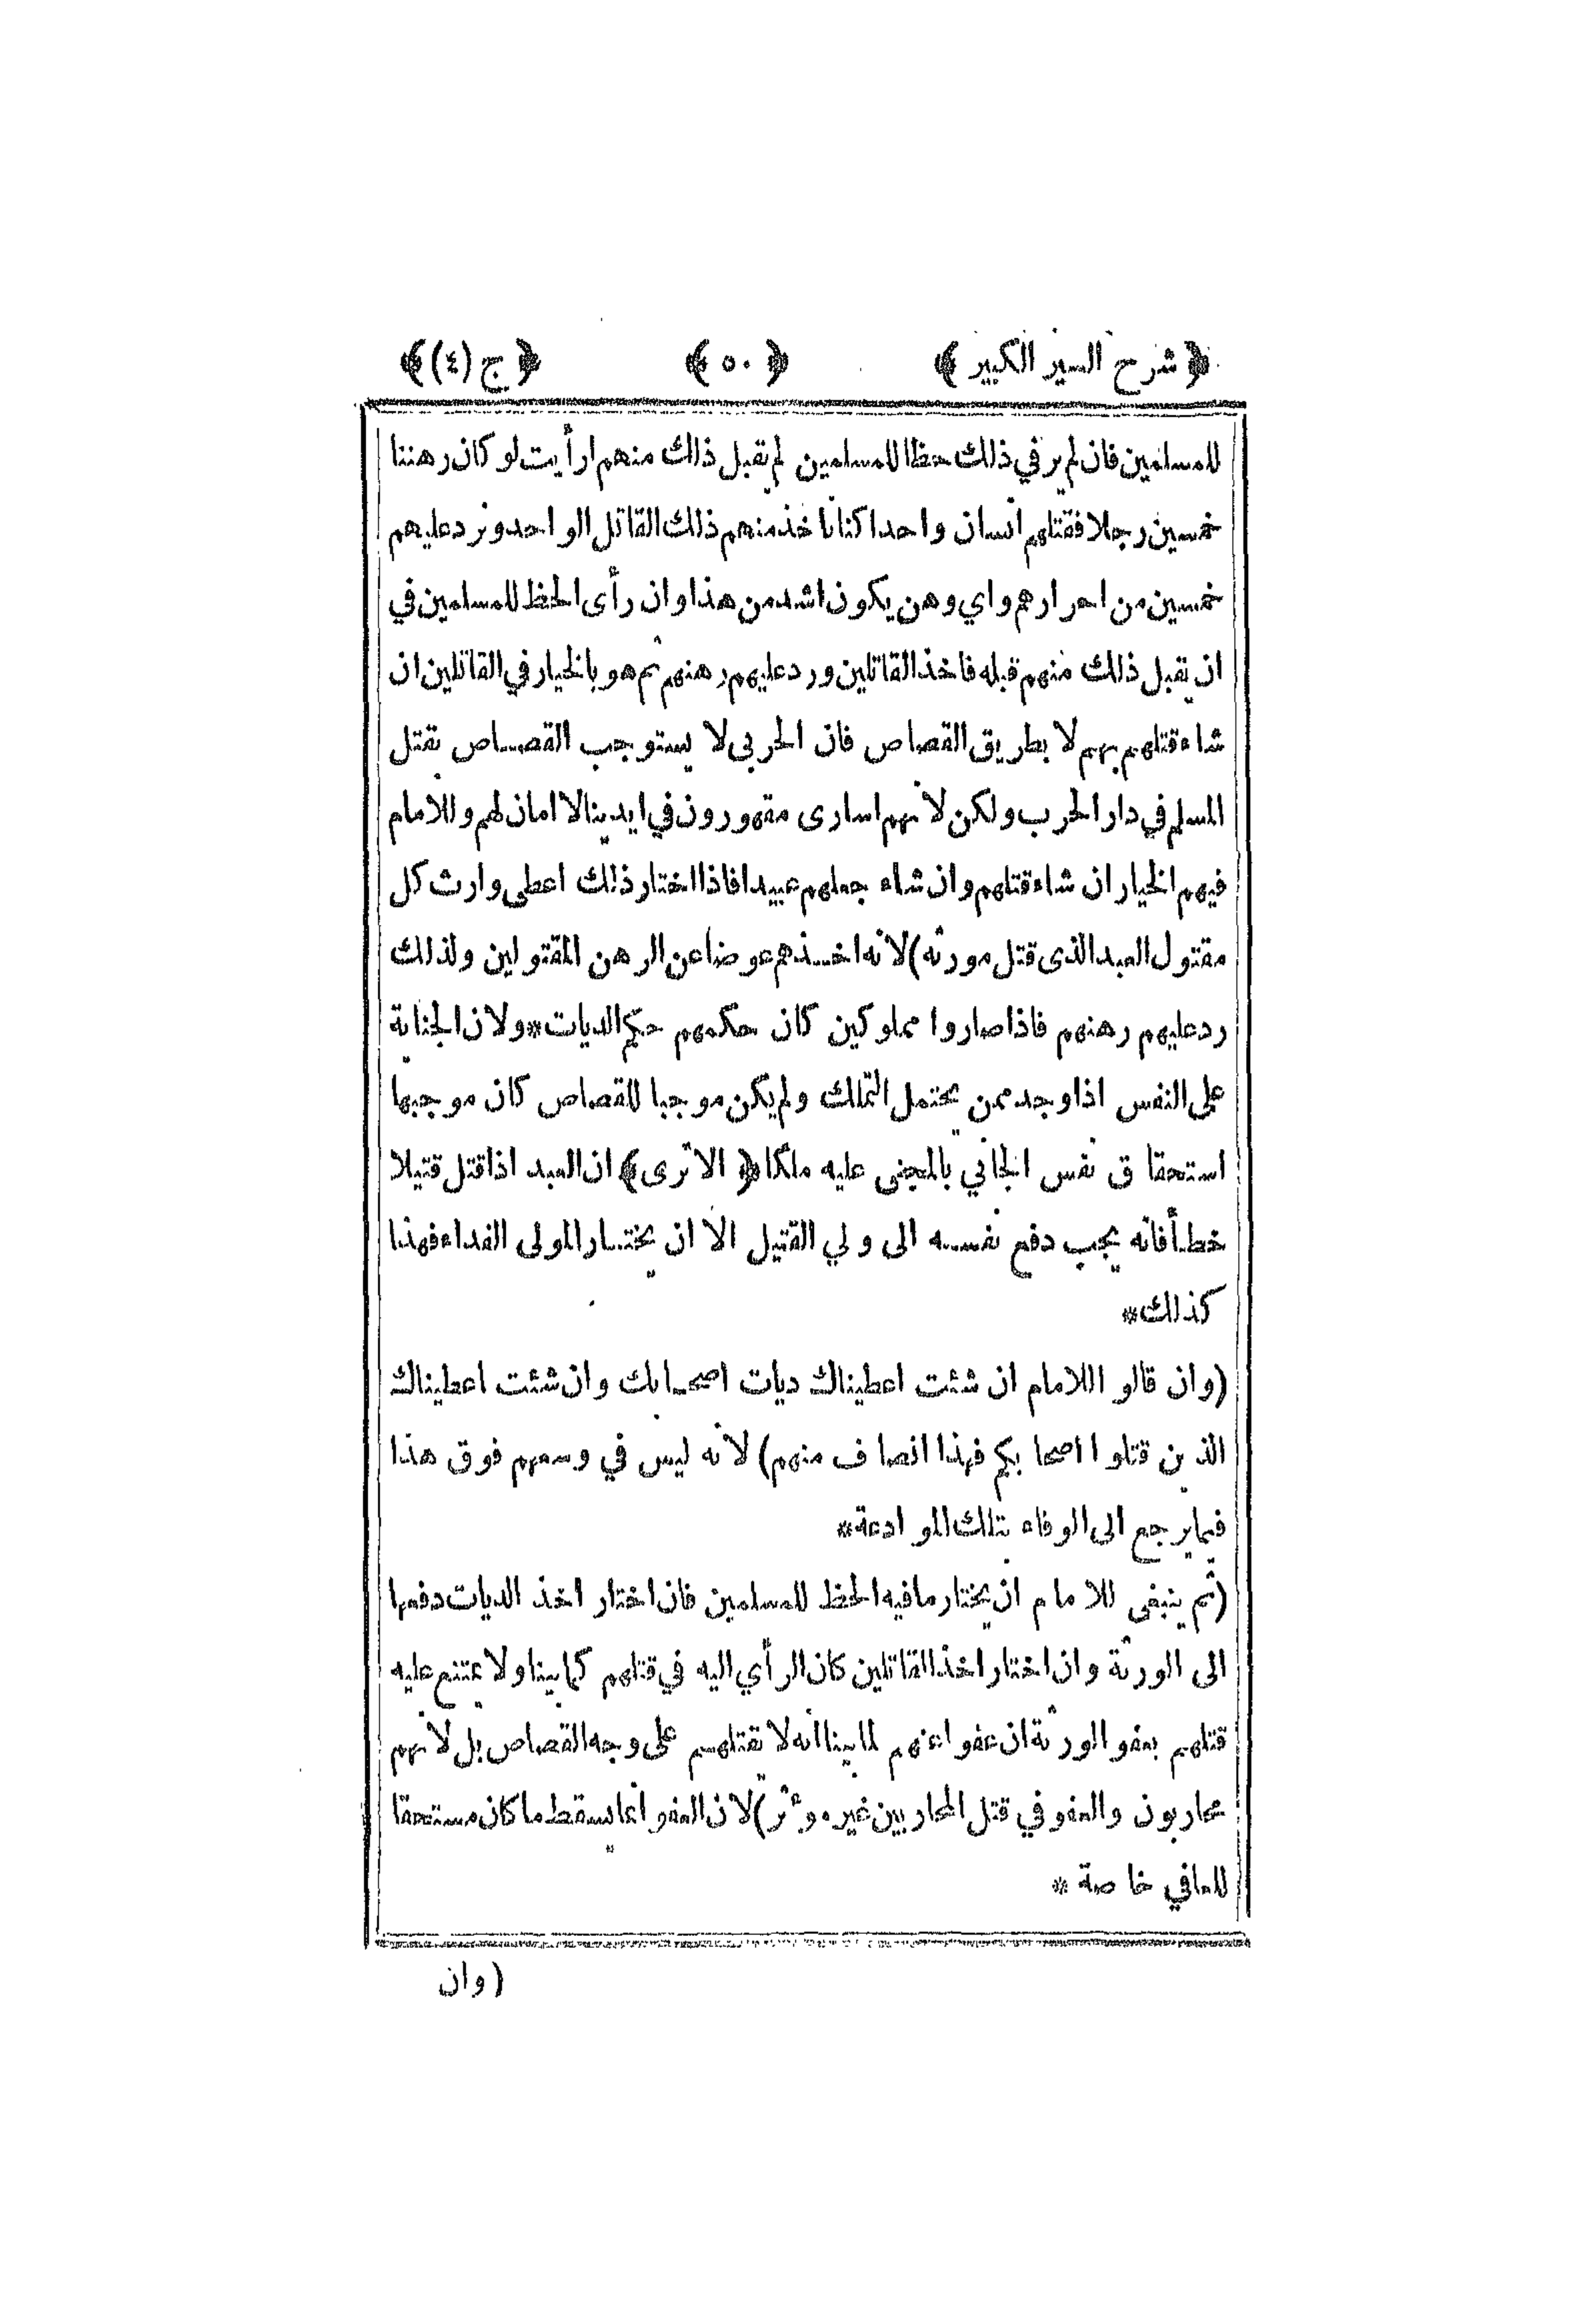 ﴿ شرح السير الكبير ﴾ ﴿ ٥٠ ﴾ ﴿ ج (٤) ﴾
للمسلمين فان لم ير في ذلك حظا للمسلمين لم يقبل ذلك منهم ارأيت لو كان رهننا
خمسين رجلا فقتلهم انسان واحد اكنا ناخذ منهم ذلك القاتل الواحد ونرد عليهم
خمسين من احرارهم واي وهن يكون اشد من هذا وان رأى الحظ للمسلمين في
ان يقبل ذلك منهم قبله فاخذ القاتلين ورد عليهم رهنهم ثم هو بالخيار في القاتلين ان
شاء قتلهم بهم لا بطريق القصاص فان الحربى لا يستوجب القصاص بقتل
المسلم في دار الحرب ولكن لانهم اسارى مقهورون في ايدينا لا امان لهم وللامام
فيهم الخيار ان شاء قتلهم وان شاء جعلهم عبيدا فاذا اختار ذلك اعطى وارث كل
مقتول العبد الذى قتل مورثه) لانه اخذهم عوضا عن الرهن المقتولين ولذلك
رد عليهم رهنهم فاذا صاروا مملوكين كان حكمهم حكم الديات * ولان الجناية
على النفس اذا وجد ممن يحتمل التملك ولم يكن موجبا للقصاص كان موجبها
استحقاق نفس الجاني بالمجنى عليه ملكا ﴿ الا ترى ﴾ ان العبد اذا قتل قتيلا
خطأ فانه يجب دفع نفسه الى ولي القتيل الا ان يختار المولى الفداء فهذا
كذلك *
(وان قالوا للامام ان شئت اعطيناك ديات اصحابك وان شئت اعطيناك
الذين قتلوا اصحابكم فهذا انصاف منهم) لانه ليس في وسعهم فوق هذا
فيما يرجع الى الوفاء بتلك الموادعة *
(ثم ينبغى للامام ان يختار ما فيه الحظ للمسلمين فان اختار اخذ الديات دفعها
الى الورثة وان اختار اخذ القاتلين كان الرأي اليه في قتلهم كما بينا ولا يمتنع عليه
قتلهم بعفو الورثة ان عفوا عنهم لما بينا انه لا يقتلهم على وجه القصاص بل لانهم
محاربون والعفو في قتل المحاربين غير مؤثر) لان العفو انما يسقط ما كان مستحقا
للعافي خاصة *
(وان